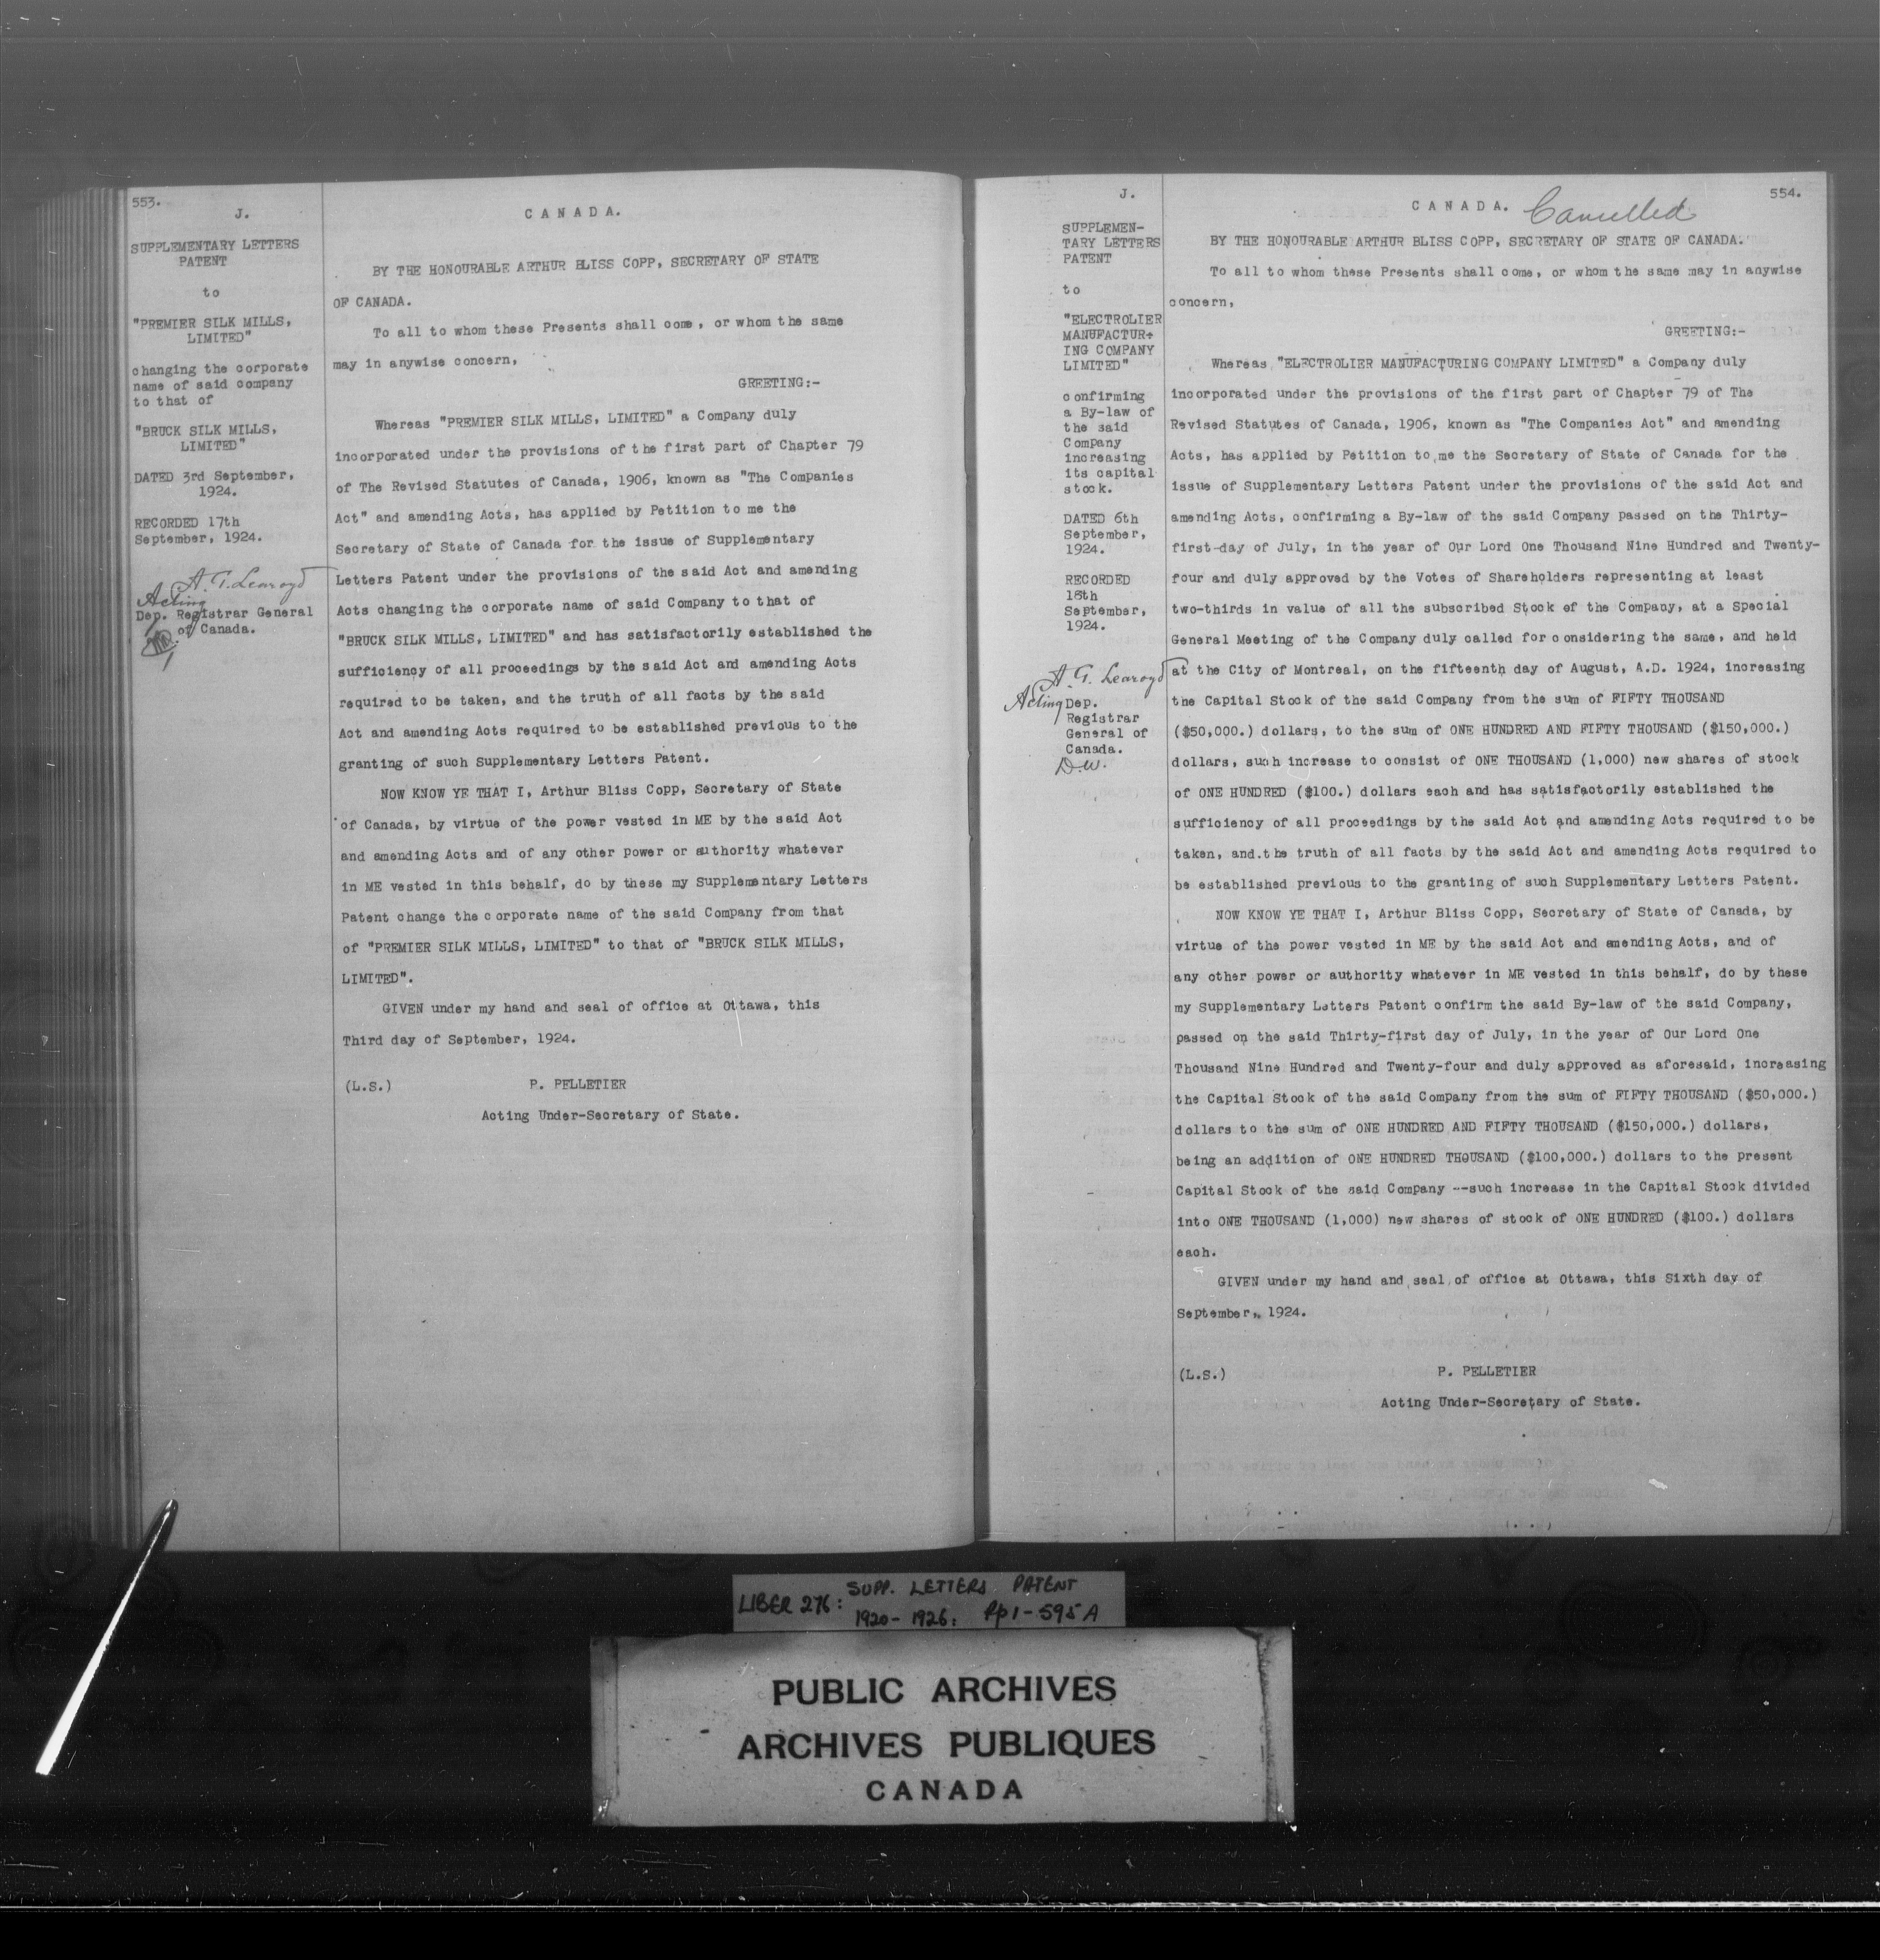 553.
J.
SUPPLEMENTARY LETTERS
PATENT
to
"PREMIER SILK MILLS,
LIMITED"
changing the corporate
name of said company
to that of
"BRUCK SILK MILLS,
LIMITED"
DATED 3rd September,
1924.
RECORDED 17th
September, 1924.
A. G. Learoyd
Acting
Dep. Registrar General
of Canada.
CANADA.
BY THE HONOURABLE ARTHUR BLISS COPP, SECRETARY OF STATE
OF CANADA.
To all to whom these Presents shall come, or whom the same
may in anywise concern,
GREETING:-
Whereas "PREMIER SILK MILLS, LIMITED" a Company duly
incorporated under the provisions of the first part of Chapter 79
of The Revised Statutes of Canada, 1906, known as "The Companies
Act" and amending Acts, has applied by Petition to me the
Secretary of State of Canada for the issue of Supplementary
Letters Patent under the provisions of the said Act and amending
Acts changing the corporate name of said Company to that of
"BRUCK SILK MILLS, LIMITED" and has satisfactorily established the
sufficiency of all proceedings by the said Act and amending Acts
required to be taken, and the truth of all facts by the said
Act and amending Acts required to be established previous to the
granting of such Supplementary Letters Patent.
NOW KNOW YE THAT I, Arthur Bliss Copp, Secretary of State
of Canada, by virtue of the power vested in ME by the said Act
and amending Acts and of any other power or authority whatever
in ME vested in this behalf, do by these my Supplementary Letters
Patent change the corporate name of the said Company from that
of "PREMIER SILK MILLS, LIMITED" to that of "BRUCK SILK MILLS,
LIMITED".
GIVEN under my hand and seal of office at Ottawa, this
Third day of September, 1924.
(L.S.) P. PELLETIER
Acting Under-Secretary of State.
J.
SUPPLEMEN-
TARY LETTERS
PATENT
to
"ELECTROLIER
MANUFACTUR-
ING COMPANY
LIMITED"
confirming
a By-law of
the said
Company
increasing
its capital
stock.
DATED 6th
September,
1924.
RECORDED
18th
September,
1924.
A. G. Learoyd
Acting Dep.
Registrar
General of
Canada.
D.W.
554.
CANADA. Cancelled
BY THE HONOURABLE ARTHUR BLISS COPP, SECRETARY OF STATE OF CANADA.
To all to whom these Presents shall come, or whom the same may in anywise
concern,
GREETING:-
Whereas "ELECTROLIER MANUFACTURING COMPANY LIMITED" a Company duly
incorporated under the provisions of the first part of Chapter 79 of The
Revised Statutes of Canada, 1906, known as "The Companies Act" and amending
Acts, has applied by Petition to me the Secretary of State of Canada for the
issue of Supplementary Letters Patent under the provisions of the said Act and
amending Acts, confirming a By-law of the said Company passed on the Thirty-
first day of July, in the year of Our Lord One Thousand Nine Hundred and Twenty-
four and duly approved by the Votes of Shareholders representing at least
two-thirds in value of all the subscribed Stock of the Company, at a Special
General Meeting of the Company duly called for considering the same, and held
at the City of Montreal, on the fifteenth day of August, A.D. 1924, increasing
the Capital Stock of the said Company from the sum of FIFTY THOUSAND
($50,000.) dollars, to the sum of ONE HUNDRED AND FIFTY THOUSAND ($150,000.)
dollars, such increase to consist of ONE THOUSAND (1,000) new shares of stock
of ONE HUNDRED ($100.) dollars each and has satisfactorily established the
sufficiency of all proceedings by the said Act and amending Acts required to be
taken, and the truth of all facts by the said Act and amending Acts required to
be established previous to the granting of such Supplementary Letters Patent.
NOW KNOW YE THAT I, Arthur Bliss Copp, Secretary of State of Canada, by
virtue of the power vested in ME by the said Act and amending Acts, and of
any other power or authority whatever in ME vested in this behalf, do by these
my Supplementary Letters Patent confirm the said By-law of the said Company,
passed on the said Thirty-first day of July, in the year of Our Lord One
Thousand Nine Hundred and Twenty-four and duly approved as aforesaid, increasing
the Capital Stock of the said Company from the sum of FIFTY THOUSAND ($50,000.)
dollars to the sum of ONE HUNDRED AND FIFTY THOUSAND ($150,000.) dollars,
being an addition of ONE HUNDRED THOUSAND ($100,000.) dollars to the present
Capital Stock of the said Company --such increase in the Capital Stock divided
into ONE THOUSAND (1,000) new shares of stock of ONE HUNDRED ($100.) dollars
each.
GIVEN under my hand and seal of office at Ottawa, this Sixth day of
September, 1924.
(L.S.) P. PELLETIER
Acting Under-Secretary of State.
LIBER 276: SUPP. LETTERS PATENT
1920-1926: Pp 1-595A
PUBLIC ARCHIVES
ARCHIVES PUBLIQUES
CANADA